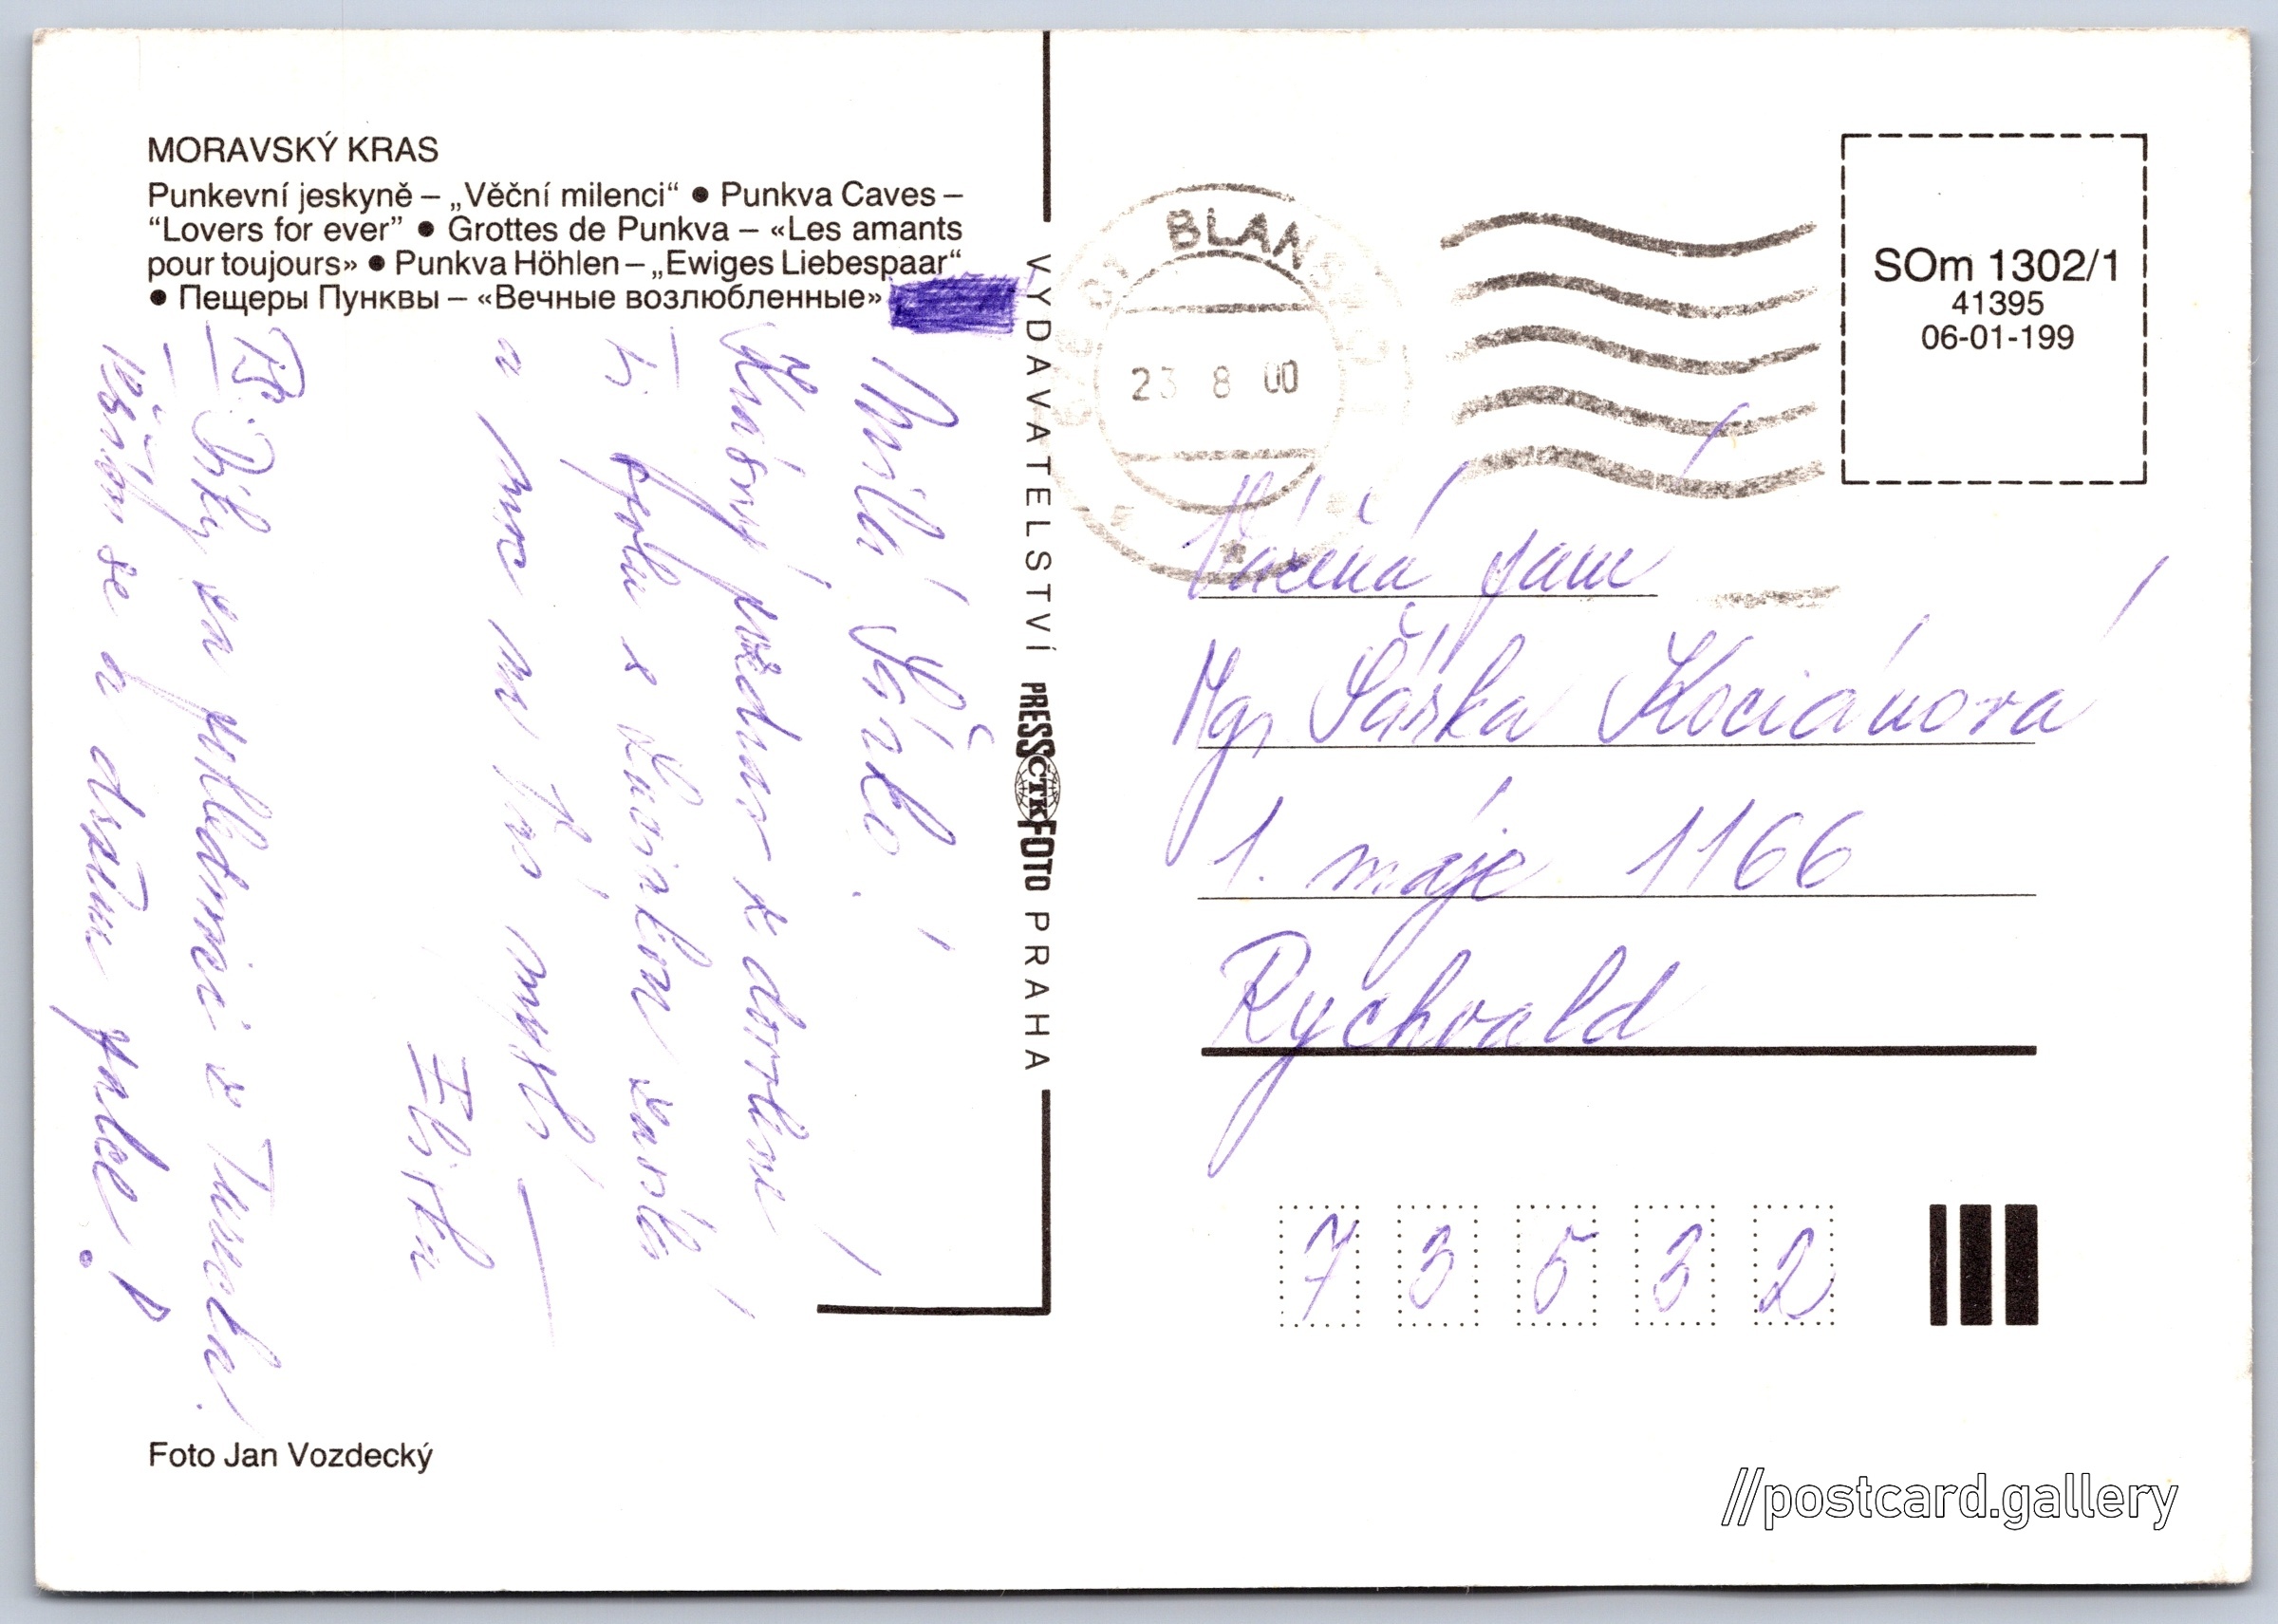 MORAVSKÝ KRAS
Punkevní jeskyně – „Věční milenci“ ● Punkva Caves –
“Lovers for ever” ● Grottes de Punkva – «Les amants
pour toujours» ● Punkva Höhlen – „Ewiges Liebespaar“
● Пещеры Пунквы – «Вечные возлюбленные»
Milá Šárko!
krásný pozdrav z dovolené
Ti spolu s Lucinkou zasílá
a moc na Vás myslí
Eliška
PS: Díky za pohlednici z Turecka.
Těším se a
Foto Jan Vozdecký
VYDAVATELSTVÍ PRESSČTKFOTO PRAHA
BLANSKO 1
23 8 00
SOm 1302/1
41395
06-01-199
Vážená paní
Mgr. Šárka Kociánová
1. máje 1166
Rychvald
73532
//postcard.gallery